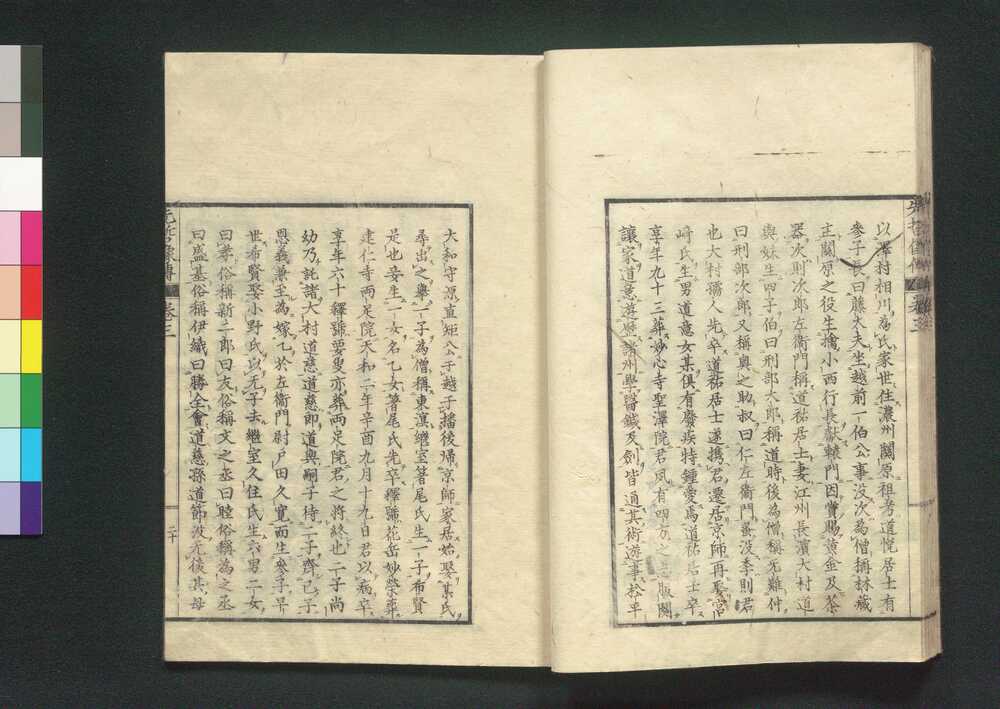 以澤村相川為氏家世住濃州關原祖考道悅居士有
參子長曰藤太夫坐越前一伯公事沒次為僧稱林藏
主關原之役生擒小西行長獻轅門因賞賜黃金及茶
器次則次郎左衞門稱道祐居士妻江州長濱大村道
與妹生四子伯曰刑部太郎稱道時後為僧稱无難仲
曰刑部次郎又稱與之助叔曰仁左衞門蚤沒季則君
也大村孺人先卒道祐居士遂携君遷居京師再娶宮
崎氏生男道意女某俱有廢疾特鍾愛焉道祐居士卒
享年九十三葬妙心寺聖澤院君夙有四方之志販鬭
讓家道意遊歷諸州學醫鍼及劍皆通其術遊事松平
大和守源直矩公子越于播後帰京師家居始娶某氏
尋出之舉一子為僧稱東滇繼室箸尾氏生一子希賢
是也妾生一女名乙女箸尾氏先卒釋號花岳妙榮葬
建仁寺兩足院天和二年辛酉九月十九日君以病卒
享年六十釋號要叟亦葬兩足院君之將終也二子尚
幼乃託諸大村道慈道慈即道與嗣子待二子齊己子
恩義兼至為嫁乙於左衞門尉戶田久寬而生參子早
世希賢娶小野氏以无子去繼室久住氏生六男二女
曰孝俗稱新二郎曰友俗稱文之丞曰睦俗稱為之丞
曰盛基俗稱伊織曰勝全會道慈孫道節沒无後其母
先哲像傳
卷三
二十